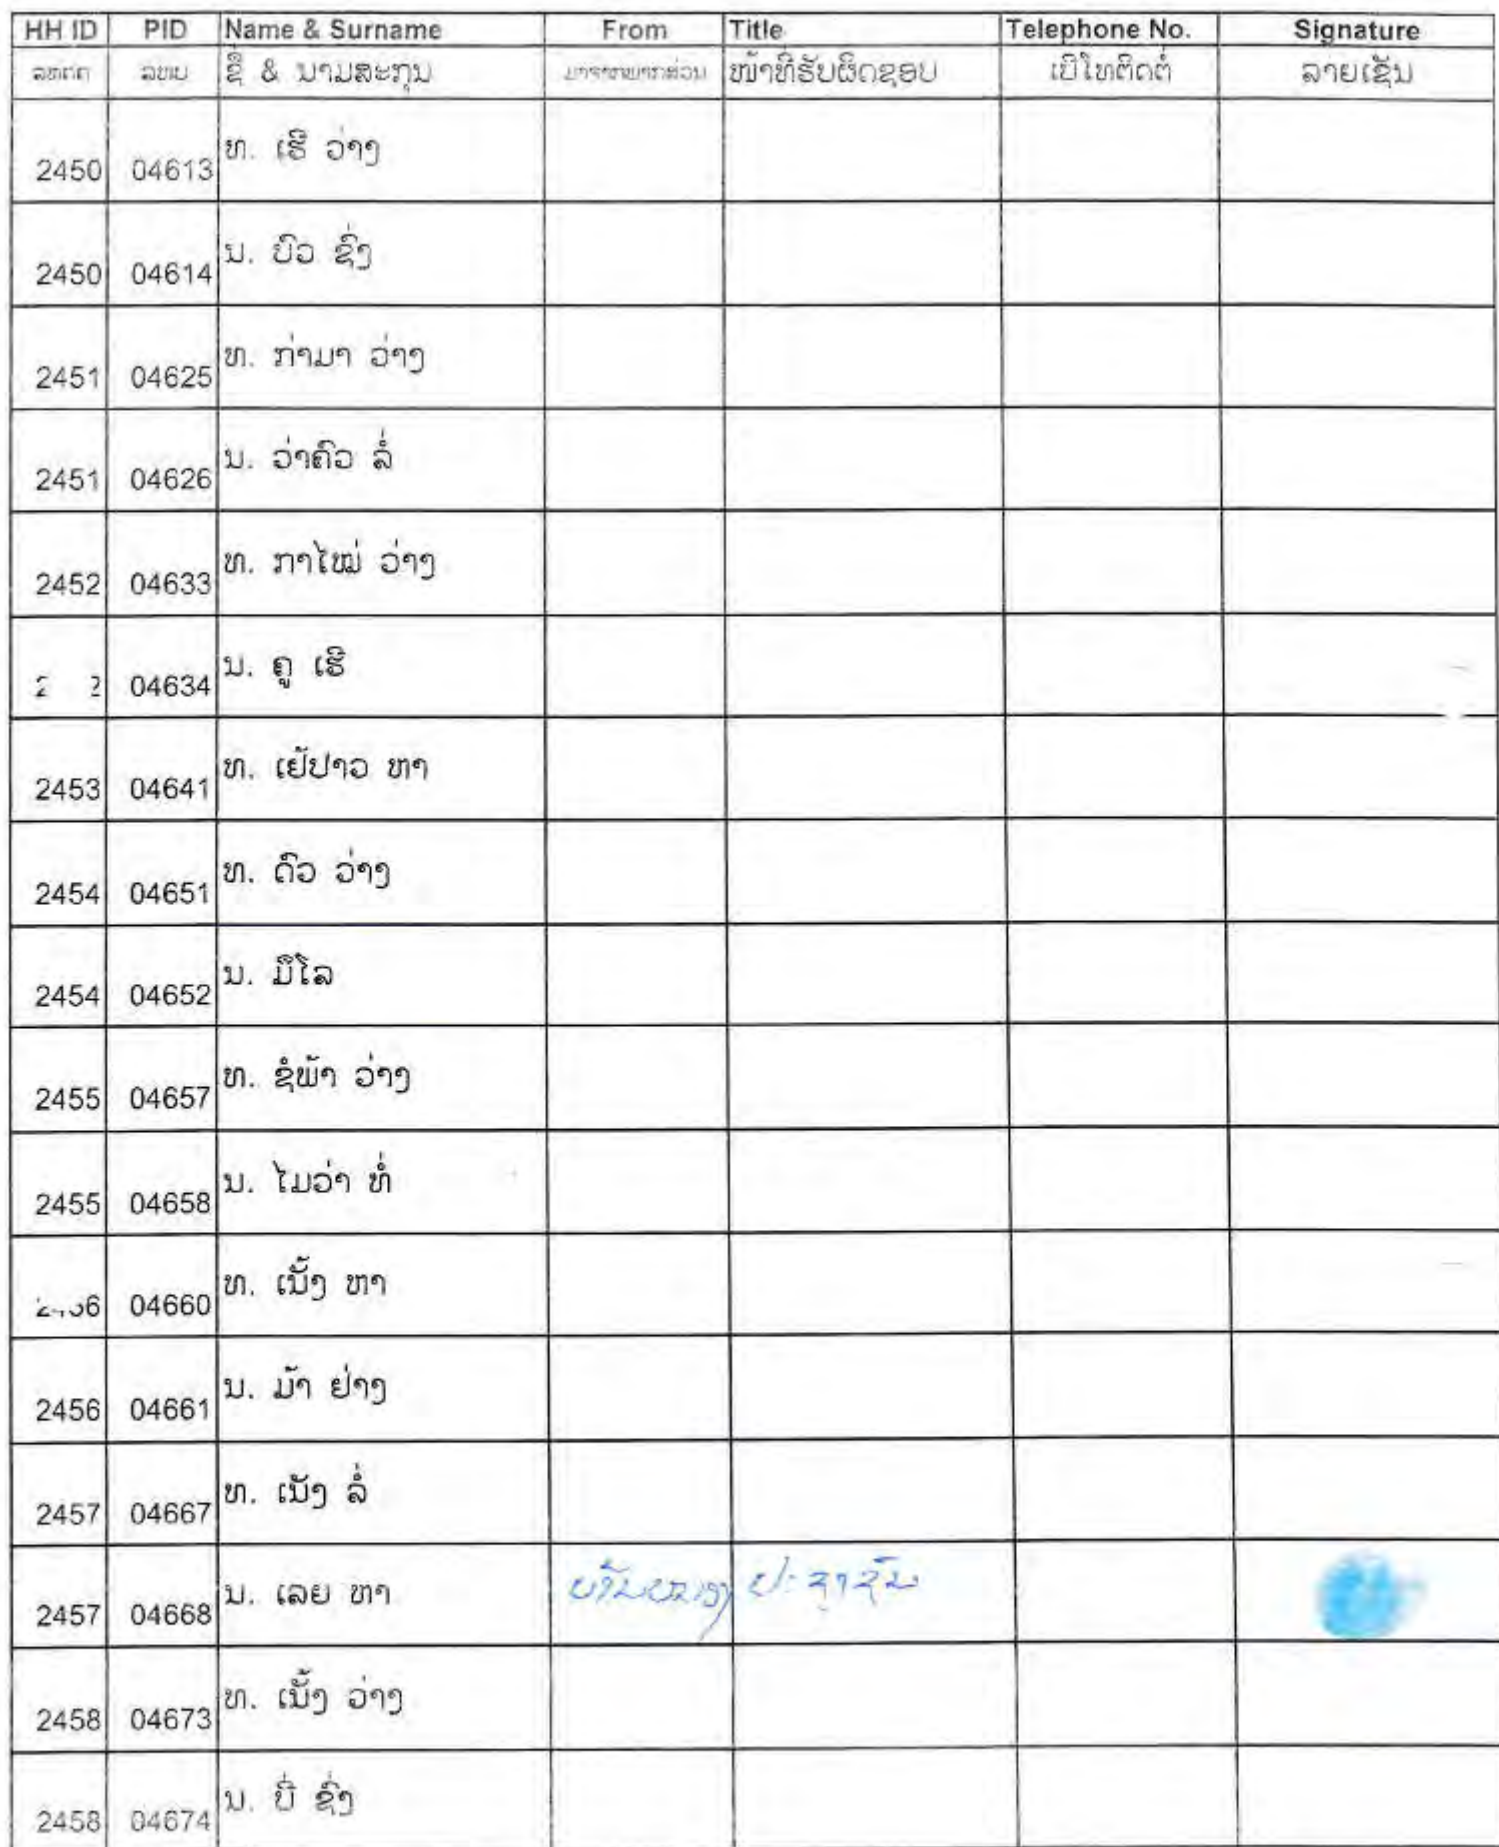 HH ID PID Name & Surname From Title Telephone No. Signature
ລຫຄຄ ລຫບ ຊື່ & ນາມສະກຸນ ມາຈາກພາກສ່ວນ ໜ້າທີ່ຮັບຜິດຊອບ ເບີໂທຕິດຕໍ່ ລາຍເຊັນ
2450 04613 ທ. ເຮີ ວ່າງ
2450 04614 ນ. ບົວ ຊົ່ງ
2451 04625 ທ. ກ່າມາ ວ່າງ
2451 04626 ນ. ວ່າຄົວ ລໍ່
2452 04633 ທ. ກາໄໝ່ ວ່າງ
04634 ນ. ຄູ ເຮີ
2453 04641 ທ. ເຢ້ປາວ ຫາ
2454 04651 ທ. ດົວ ວ່າງ
2454 04652 ນ. ມຶໂລ
2455 04657 ທ. ຊໍພ້າ ວ່າງ
2455 04658 ນ. ໄມວ່າ ທໍ່
04660 ທ. ເນັ້ງ ຫາ
2456 04661 ນ. ມ້າ ຢ່າງ
2457 04667 ທ. ເນັງ ລໍ່
2457 04668 ນ. ເລຍ ຫາ ປະຊາຊົນ
2458 04673 ທ. ເນັ້ງ ວ່າງ
2458 04674 ນ. ບີ່ ຊົ່ງ